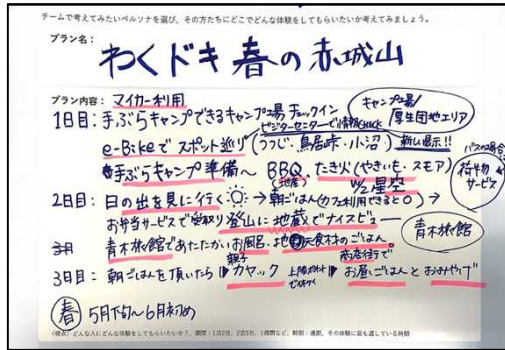 チームで考えてみたいペルソナを選び、その方たちにどこでどんな体験をしてもらいたいか考えてみましょう。
プラン名：
わくドキ 春の赤城山
プラン内容：マイカー利用
キャンプ場/厚生団地エリア
1日目：手ぶらキャンプできるキャンプ場 チェックイン
ビジターセンターで情報CHECK
e-Bikeで スポット巡り(つつじ・鳥居峠・小沼) 新しい展示!!
手ぶらキャンプ準備〜 BBQ、たき火(やきいも・スモア)
(地産)
星空
バスの場合
荷物サービス
2日目：日の出を見に行く → 朝ごはん(カフェ利用できると○) →
お弁当サービスで受取り 登山に 地蔵でナイスビュー
青木旅館
青木旅館であたたかいお風呂、地元食材のごはん。
商店街で
3日目：朝ごはんを頂いたら カヤック お昼ごはんとおみやげ
春 5月下旬〜6月初め
(視点) どんな人にどんな体験をしてもらいたいか？、期間：1泊2日、2泊3日、1週間など、時期：通期、その体験に最も適している時期